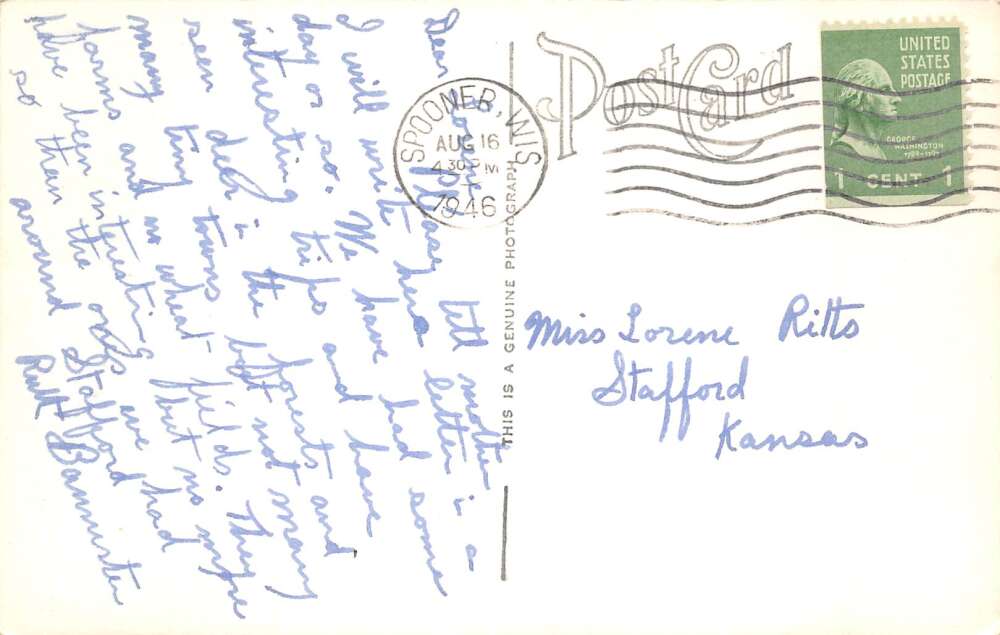 POST CARD
UNITED
STATES
POSTAGE
GEORGE
WASHINGTON
1789-1797
1 CENT 1
SPOONER, WIS
AUG 16
4 30 PM
1946
THIS IS A GENUINE PHOTOGRAPH
Dear Lorene
Please tell mother
I will write her a letter in a
day or so. We have had some
interesting trips and have
seen deer in the forests and
many tiny towns but not many
farms and no wheat fields. They
have been interesting but no more
so than the ones we had
around Stafford
Ruth Bannister
Miss Lorene Ritts
Stafford
Kansas